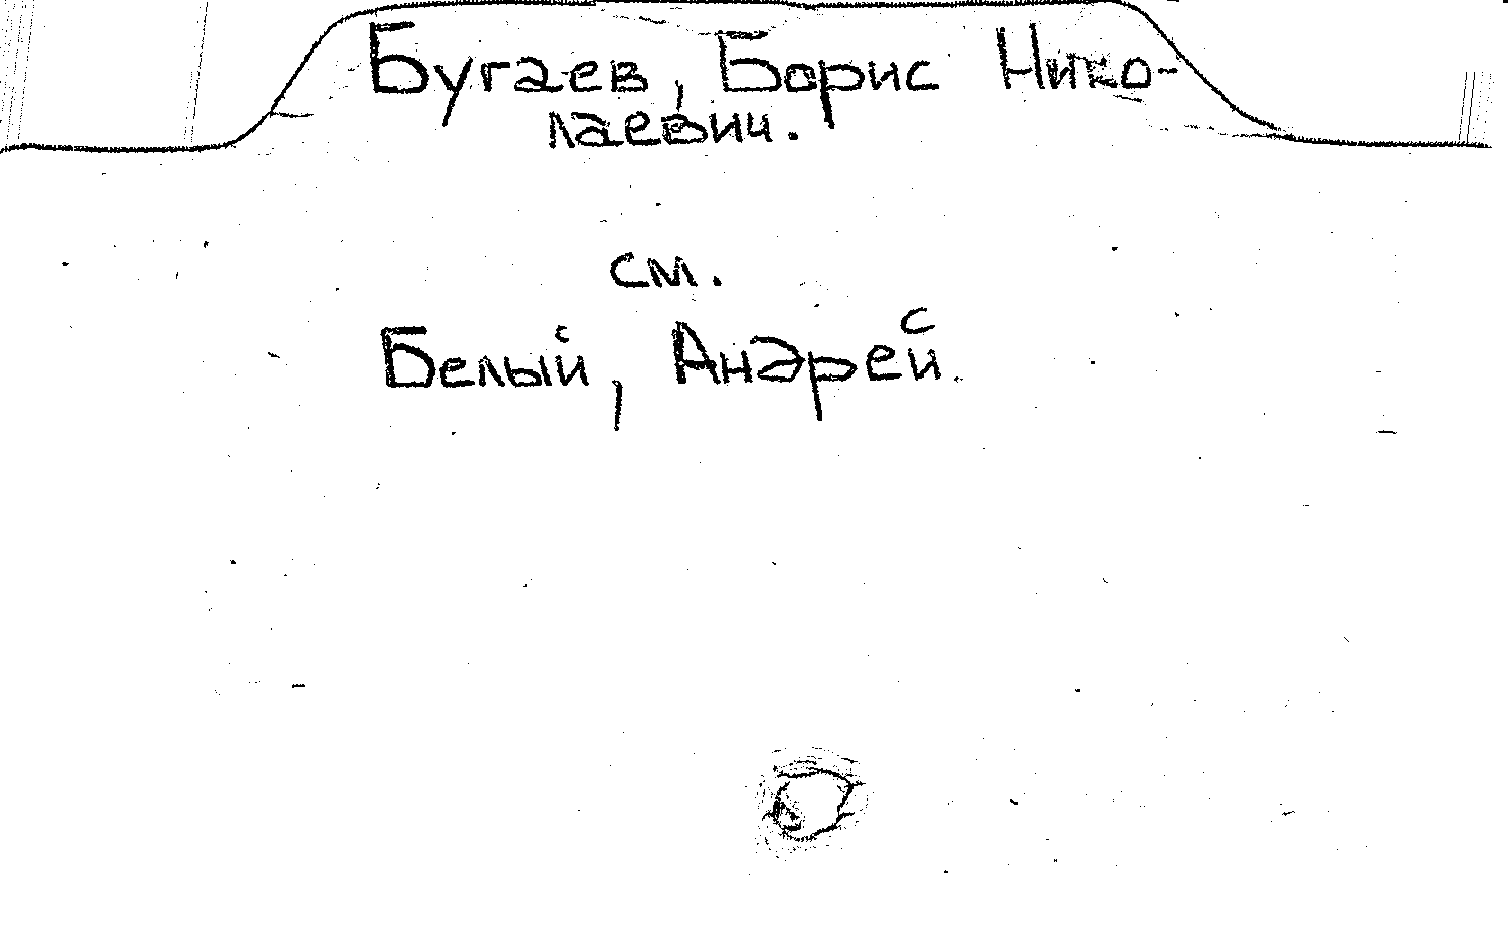 Бугаев, Борис Нико-
лаевич.
см.
Белый, Андрей.